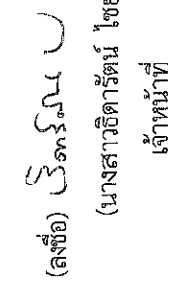 (ลงชื่อ)
(นางสาวธิดารัตน์ ไชย
เจ้าหน้าที่